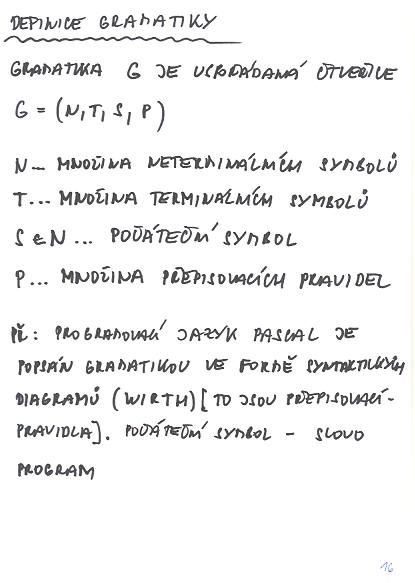 DEFINICE GRAMATIKY
GRAMATIKA G JE USPOŘÁDANÁ ČTVEŘICE
G = (N, T, S, P)
N... MNOŽINA NETERMINÁLNÍCH SYMBOLŮ
T... MNOŽINA TERMINÁLNÍCH SYMBOLŮ
S ∈ N ... POČÁTEČNÍ SYMBOL
P... MNOŽINA PŘEPISOVACÍCH PRAVIDEL
PŘ: PROGRAMOVACÍ JAZYK PASCAL JE
POPSÁN GRAMATIKOU VE FORMĚ SYNTAKTICKÝCH
DIAGRAMŮ (WIRTH) [TO JSOU PŘEPISOVACÍ-
PRAVIDLA]. POČÁTEČNÍ SYMBOL - SLOVO
PROGRAM
16